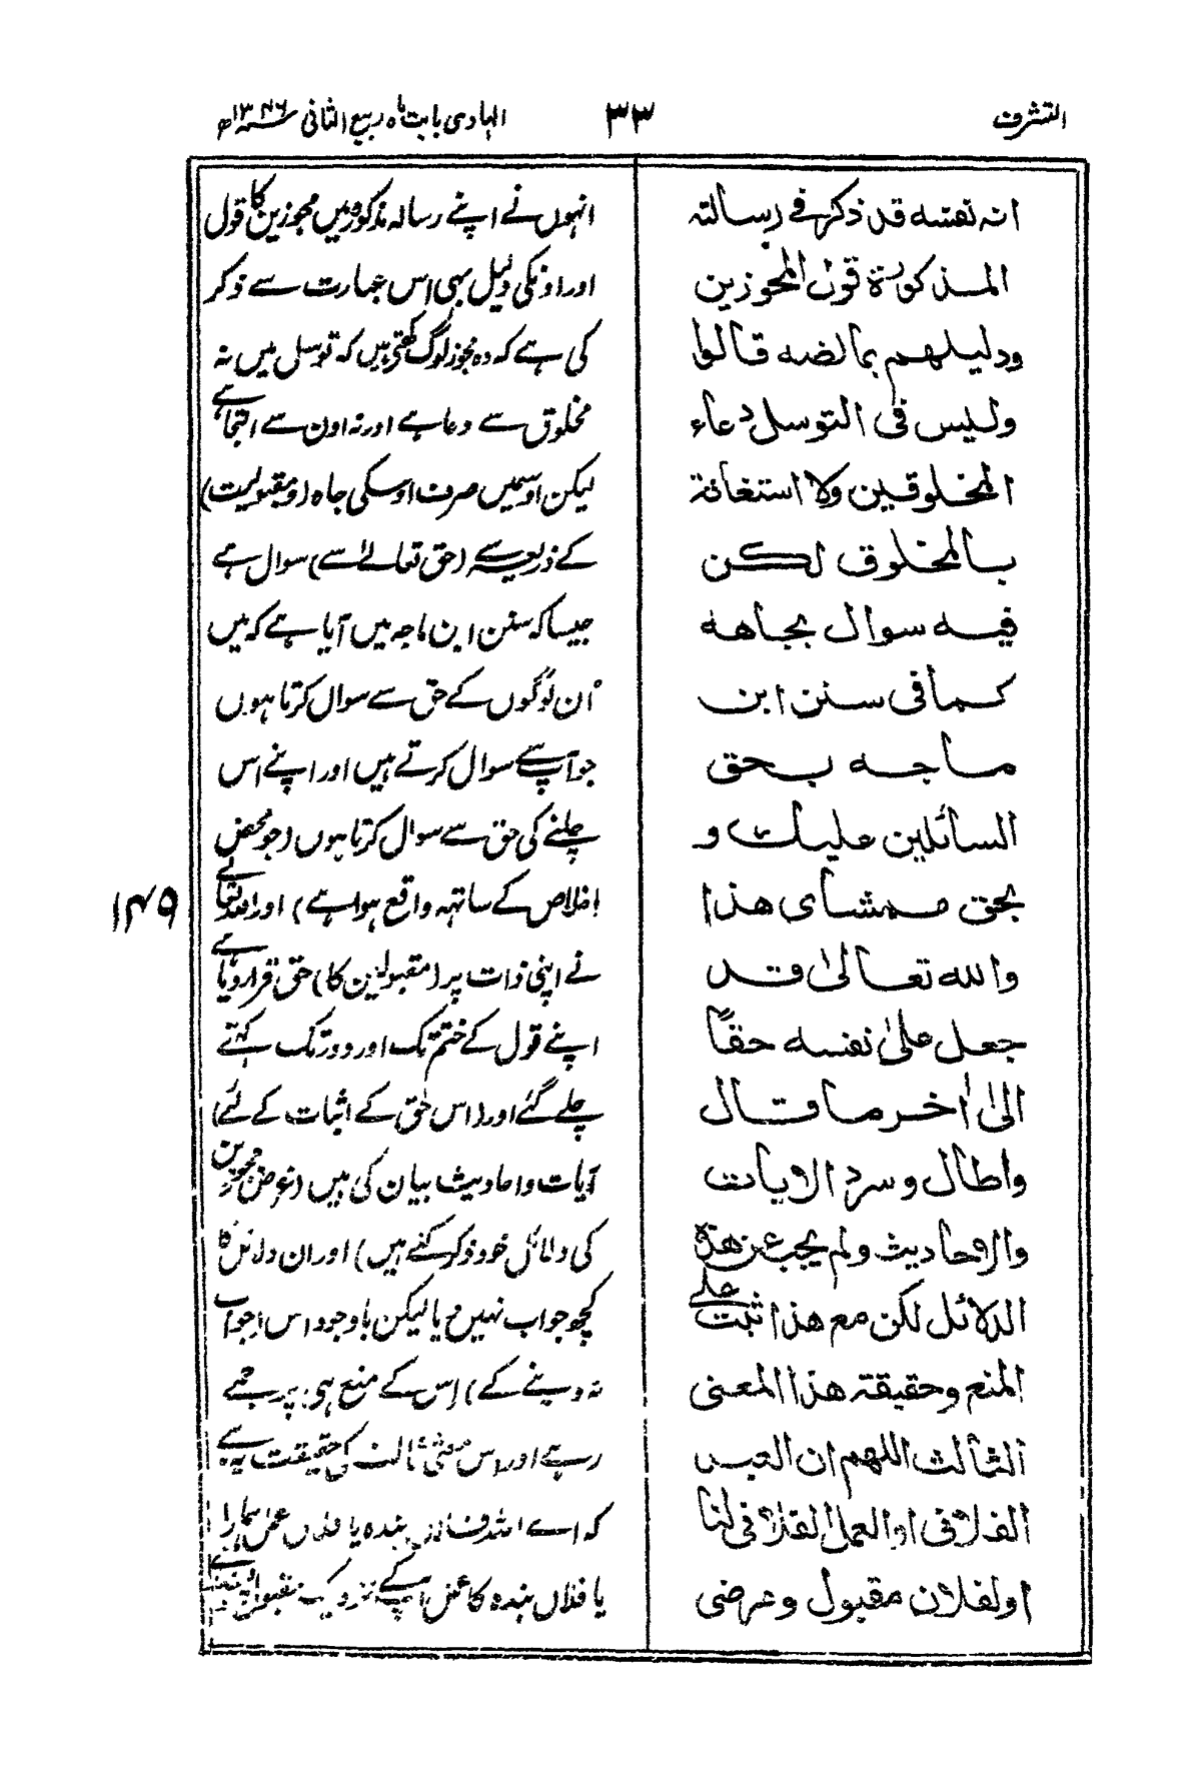 التشرف
۳۳
الہادی بابت ماہ ربیع الثانی ۱۳۴۶ھ
انہ نفسہ قد ذکر فی رسالتہ
المذکورۃ قول المجوزین
ودلیلهم بمانصه قالوا
ولیس فی التوسل دعاء
المخلوقین ولا استغاثة
بالمخلوق لکن
فیه سوال بجاهه
کما فی سنن ابن
ماجه بحق
السائلین علیک و
بحق ممشای هذا
والله تعالیٰ قد
جعل علیٰ نفسه حقاً
الیٰ اٰخر ما قال
واطال وسرد الایات
والاحادیث ولم یجب عن هذه
الدلائل لکن مع هذا ثبت علے
المنع وحقیقة هذا المعنی
الثالث اللهم ان العبد
الفلانی او العمل الفلانی لنا
اولفلان مقبول ومرضی
انہوں نے اپنے رسالہ مذکورہ میں مجوزین کا قول
اور اونکی دلیل بھی اس عبارت سے ذکر
کی ہے کہ وہ مجوز لوگ کہتے ہیں کہ توسل میں نہ
مخلوق سے دعا ہے اور نہ اون سے التجا ہے
لیکن اوسمیں صرف اوسکی جاہ (ومقبولیت)
کے ذریعہ سے (حق تعالےٰ سے) سوال ہے
جیسا کہ سنن ابن ماجہ میں آیا ہے کہ میں
اُن لوگوں کے حق سے سوال کرتا ہوں
جو آپ سے سوال کرتے ہیں اور اپنے اس
چلنے کی حق سے سوال کرتا ہوں (جو محض
اخلاص کے ساتھہ واقع ہوا ہے) اور اللہ تعالے
نے اپنی ذات پر (مقبولین کا) حق قرار دیا ہے
اپنے قول کے ختم تک اور دور تک کہتے
چلے گئے اور (اس حق کے اثبات کے لئے)
آیات واحادیث بیان کی ہیں (غرض مجوزین
کی دلائل خود ذکر کئے ہیں) اور ان دلائل کا
کچھ جواب نہیں دیا لیکن باوجود اس (جواب
نہ دینے کے) اِس کے منع ہی پر جمے
رہے اور اس معنی ثالث کی حقیقت یہ ہے
کہ اے اللہ فلاں بندہ یا فلاں عمل ہمارا
یا فلاں بندہ کا عمل آپکے نزدیک مقبول
۱۴۹